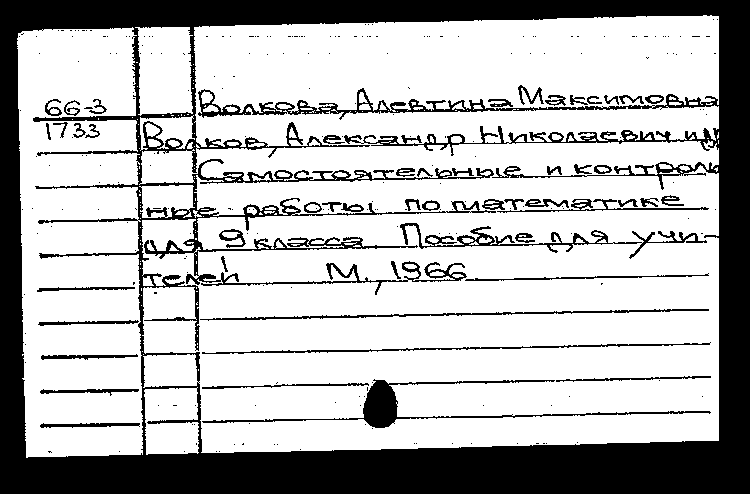 66-3
1733
Волкова, Алевтина Максимовна
Волков, Александр Николаевич и др
Самостоятельные и контроль
ные работы по математике
для 9 класса. Пособие для учи-
телей М., 1966